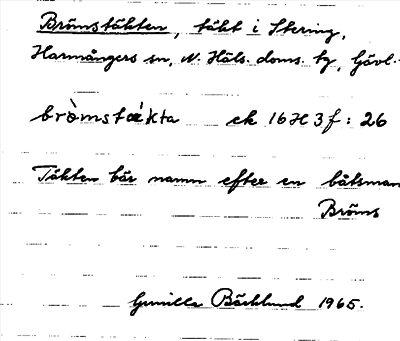 Brömstäkten, täkt i Stering,
Harmångers sn, N. Häls. doms. tg, Gävl.
brömstäkta ek 16H3f: 26
Täkten bär namn efter en båtsman
Bröms
Gunilla Bäcklund 1965.